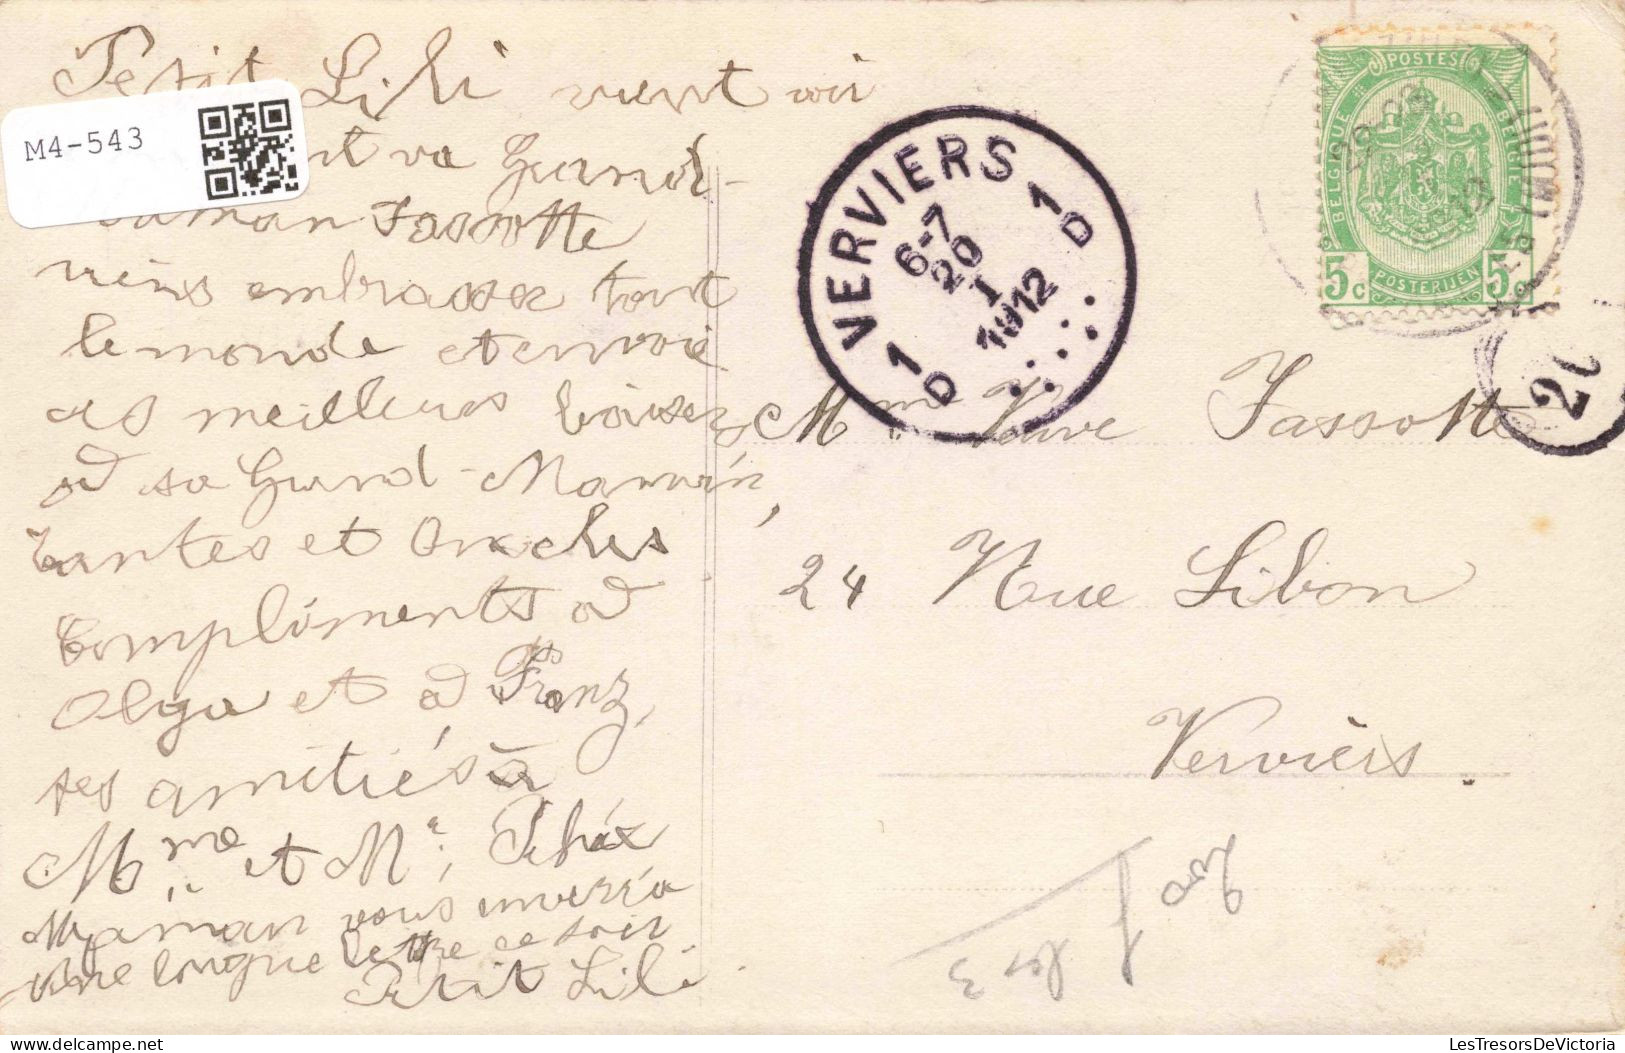 Petit Lili vient voir
M4-543
va Grand-
maman Fassotte
viens embrasser tout
le monde et envoie
ces meilleurs baisers
à sa Grand-Maman,
tantes et Oncles
Compliments à
Olga et à Franz,
ses amitiés à
Mme et Mr.
Maman vous enverra
une longue lettre ce soir
Petit Lili.
VERVIERS
1
D
6-7
20
I
1912
1
D
POSTES
BELGIQUE
BELGIË
5c
POSTERIJEN
5c
12
Mme Veuve Fassotte
24 Rue Libon
Verviers.
LesTresorsDeVictoria